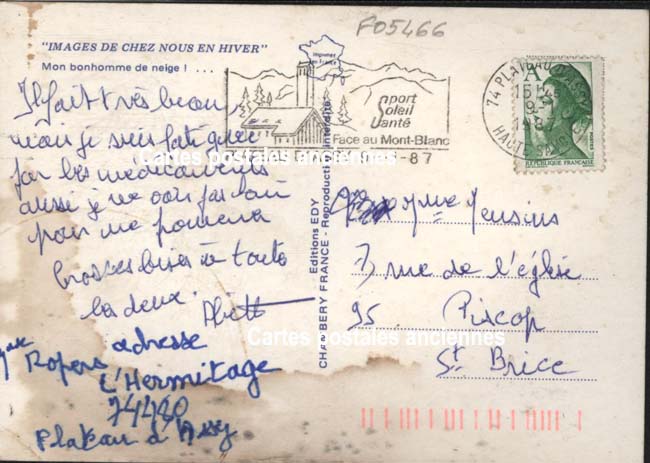 F05466
"IMAGES DE CHEZ NOUS EN HIVER"
Mon bonhomme de neige ! . . .
Il fait très beau
mais je suis fatiguée
par les médicaments
aussi je ne vais pas loin
pour me promener
Grosses bises à toute
les deux.
adresse
Ropers
L'Hermitage
74480
Plateau d'Assy
Imprimé
en France
Editions EDY
CHAMBERY FRANCE - Reproduction interdite
Sport
Soleil
Santé
Face au Mont-Blanc
-87
74 PLATEAU D'ASSY
15 H
9
HAUTE SAVOIE
A
REPUBLIQUE FRANÇAISE
POSTES
7 rue de l'église
95 Piscop
St Brice
Cartes postales anciennes
Cartes postales anciennes